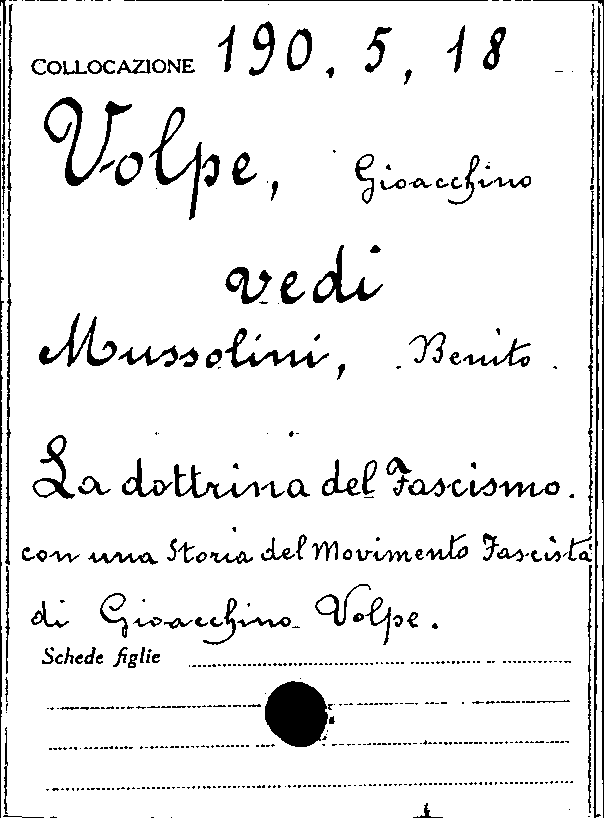 COLLOCAZIONE 190. 5, 18
Volpe, Gioacchino
vedi
Mussolini, Benito.
La dottrina del Fascismo.
con una Storia del Movimento Fascista
di Gioacchino Volpe.
Schede figlie